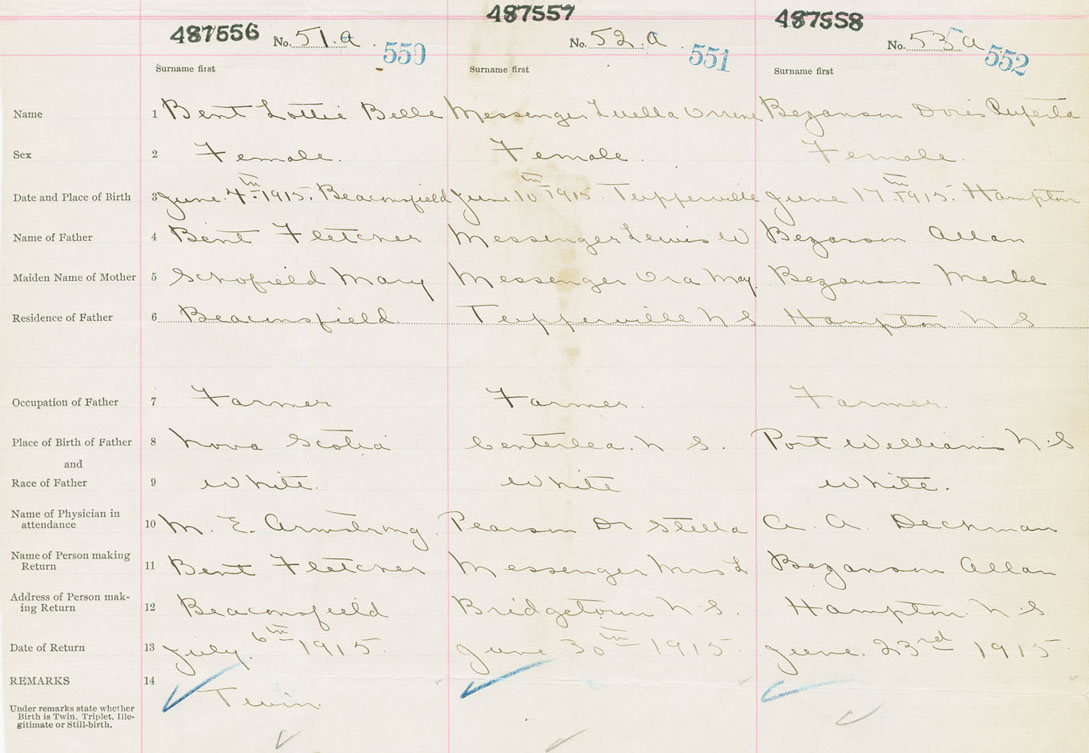 487556 No. 51 a. 550 487557 No. 52 a. 551 487558 No. 53 a 552
Surname first Surname first Surname first
Name 1 Bent Lottie Belle Messenger Luella Bezanson Doris
Sex 2 Female. Female. Female.
Date and Place of Birth 3 June 4th 1915. Beaconsfield June 10th 1915. Tupperville June 17th 1915. Hampton
Name of Father 4 Bent Fletcher Messenger Lewis W Bezanson Allan
Maiden Name of Mother 5 Schofield Mary Messenger Ora May. Bezanson Merle
Residence of Father 6 Beaconsfield. Tupperville N S Hampton N S
Occupation of Father 7 Farmer Farmer. Farmer.
Place of Birth of Father 8 Nova Scotia Centerlea. N S. Port Williams N.S
and
Race of Father 9 White. White White.
Name of Physician in
attendance 10 M. E. Armstrong. Pearson Dr Stella A. A. Deckman
Name of Person making
Return 11 Bent Fletcher Messenger Mrs L Bezanson Allan
Address of Person mak-
ing Return 12 Beaconsfield Bridgetown N.S. Hampton. N.S
Date of Return 13 July. 6th 1915. June 30th 1915 June. 23rd 1915
REMARKS 14
Twin.
Under remarks state whether
Birth is Twin, Triplet, Ille-
gitimate or Still-birth.